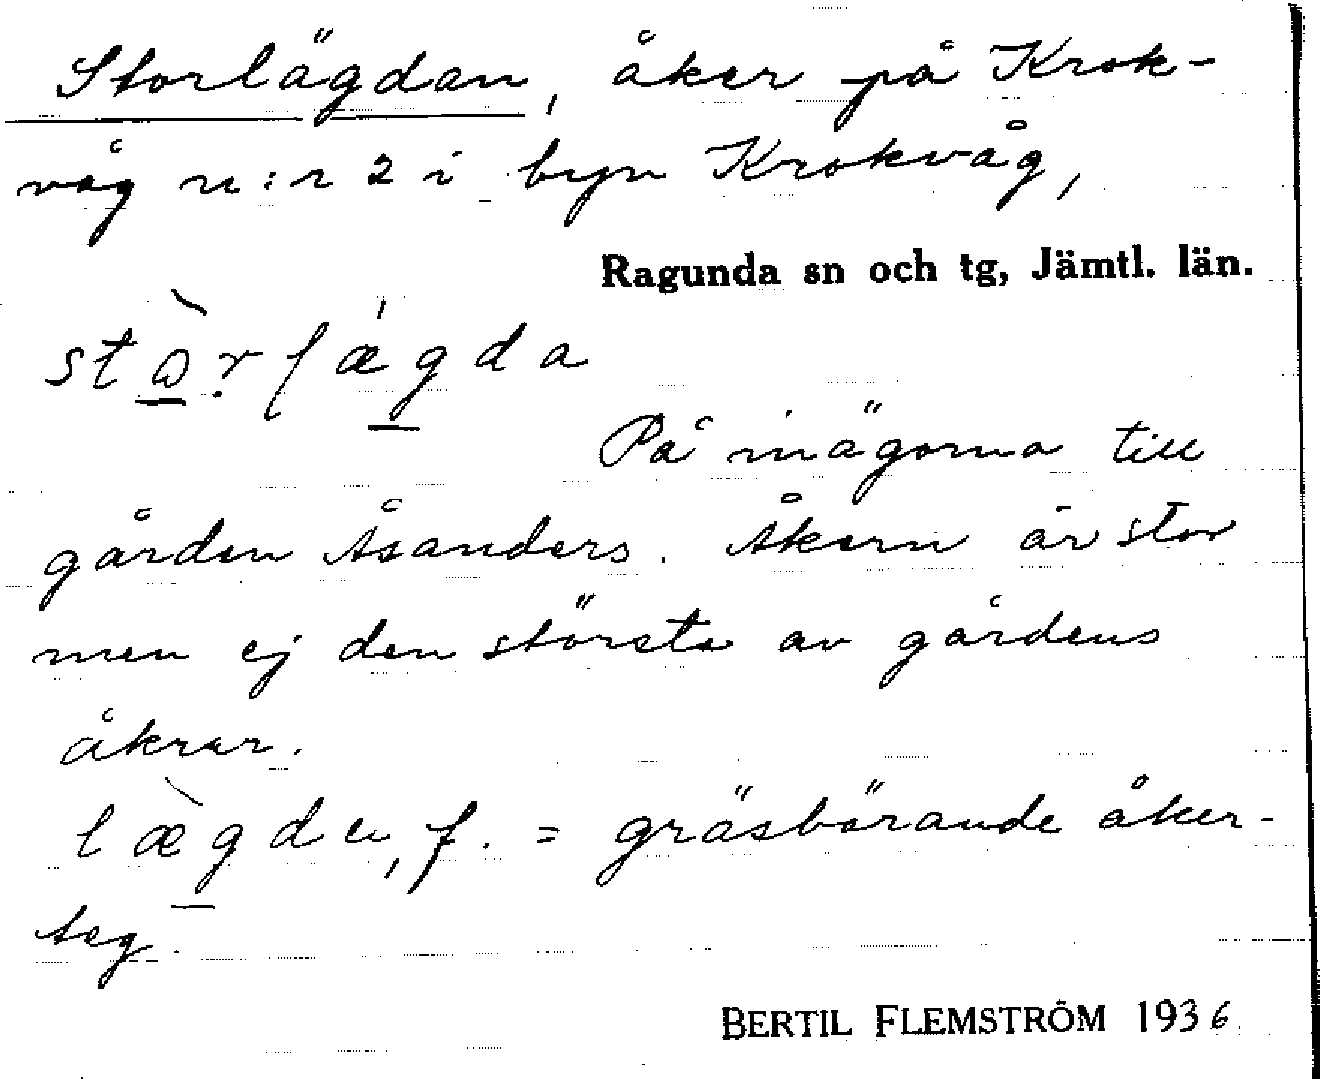 Storlägdan, åker på Krok-
våg n:r 2 i byn Krokvåg,
Ragunda sn och tg, Jämtl. län.
stɷ̀r̤lǽgda
På inägorna till
gården Åsanders. Åkern är stor
men ej den största av gårdens
åkrar.
læ̀gden, f. = gräsbärande åker-
teg.
BERTIL FLEMSTRÖM 1936